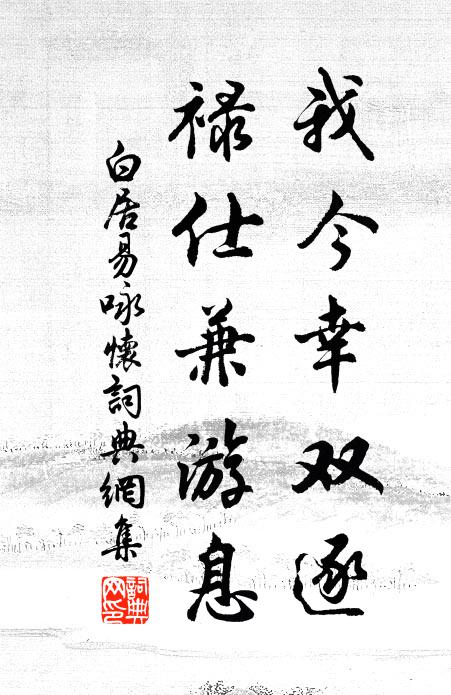 我今幸双遂
禄仕兼游息
白居易咏懷詞典網集
詞典
网印